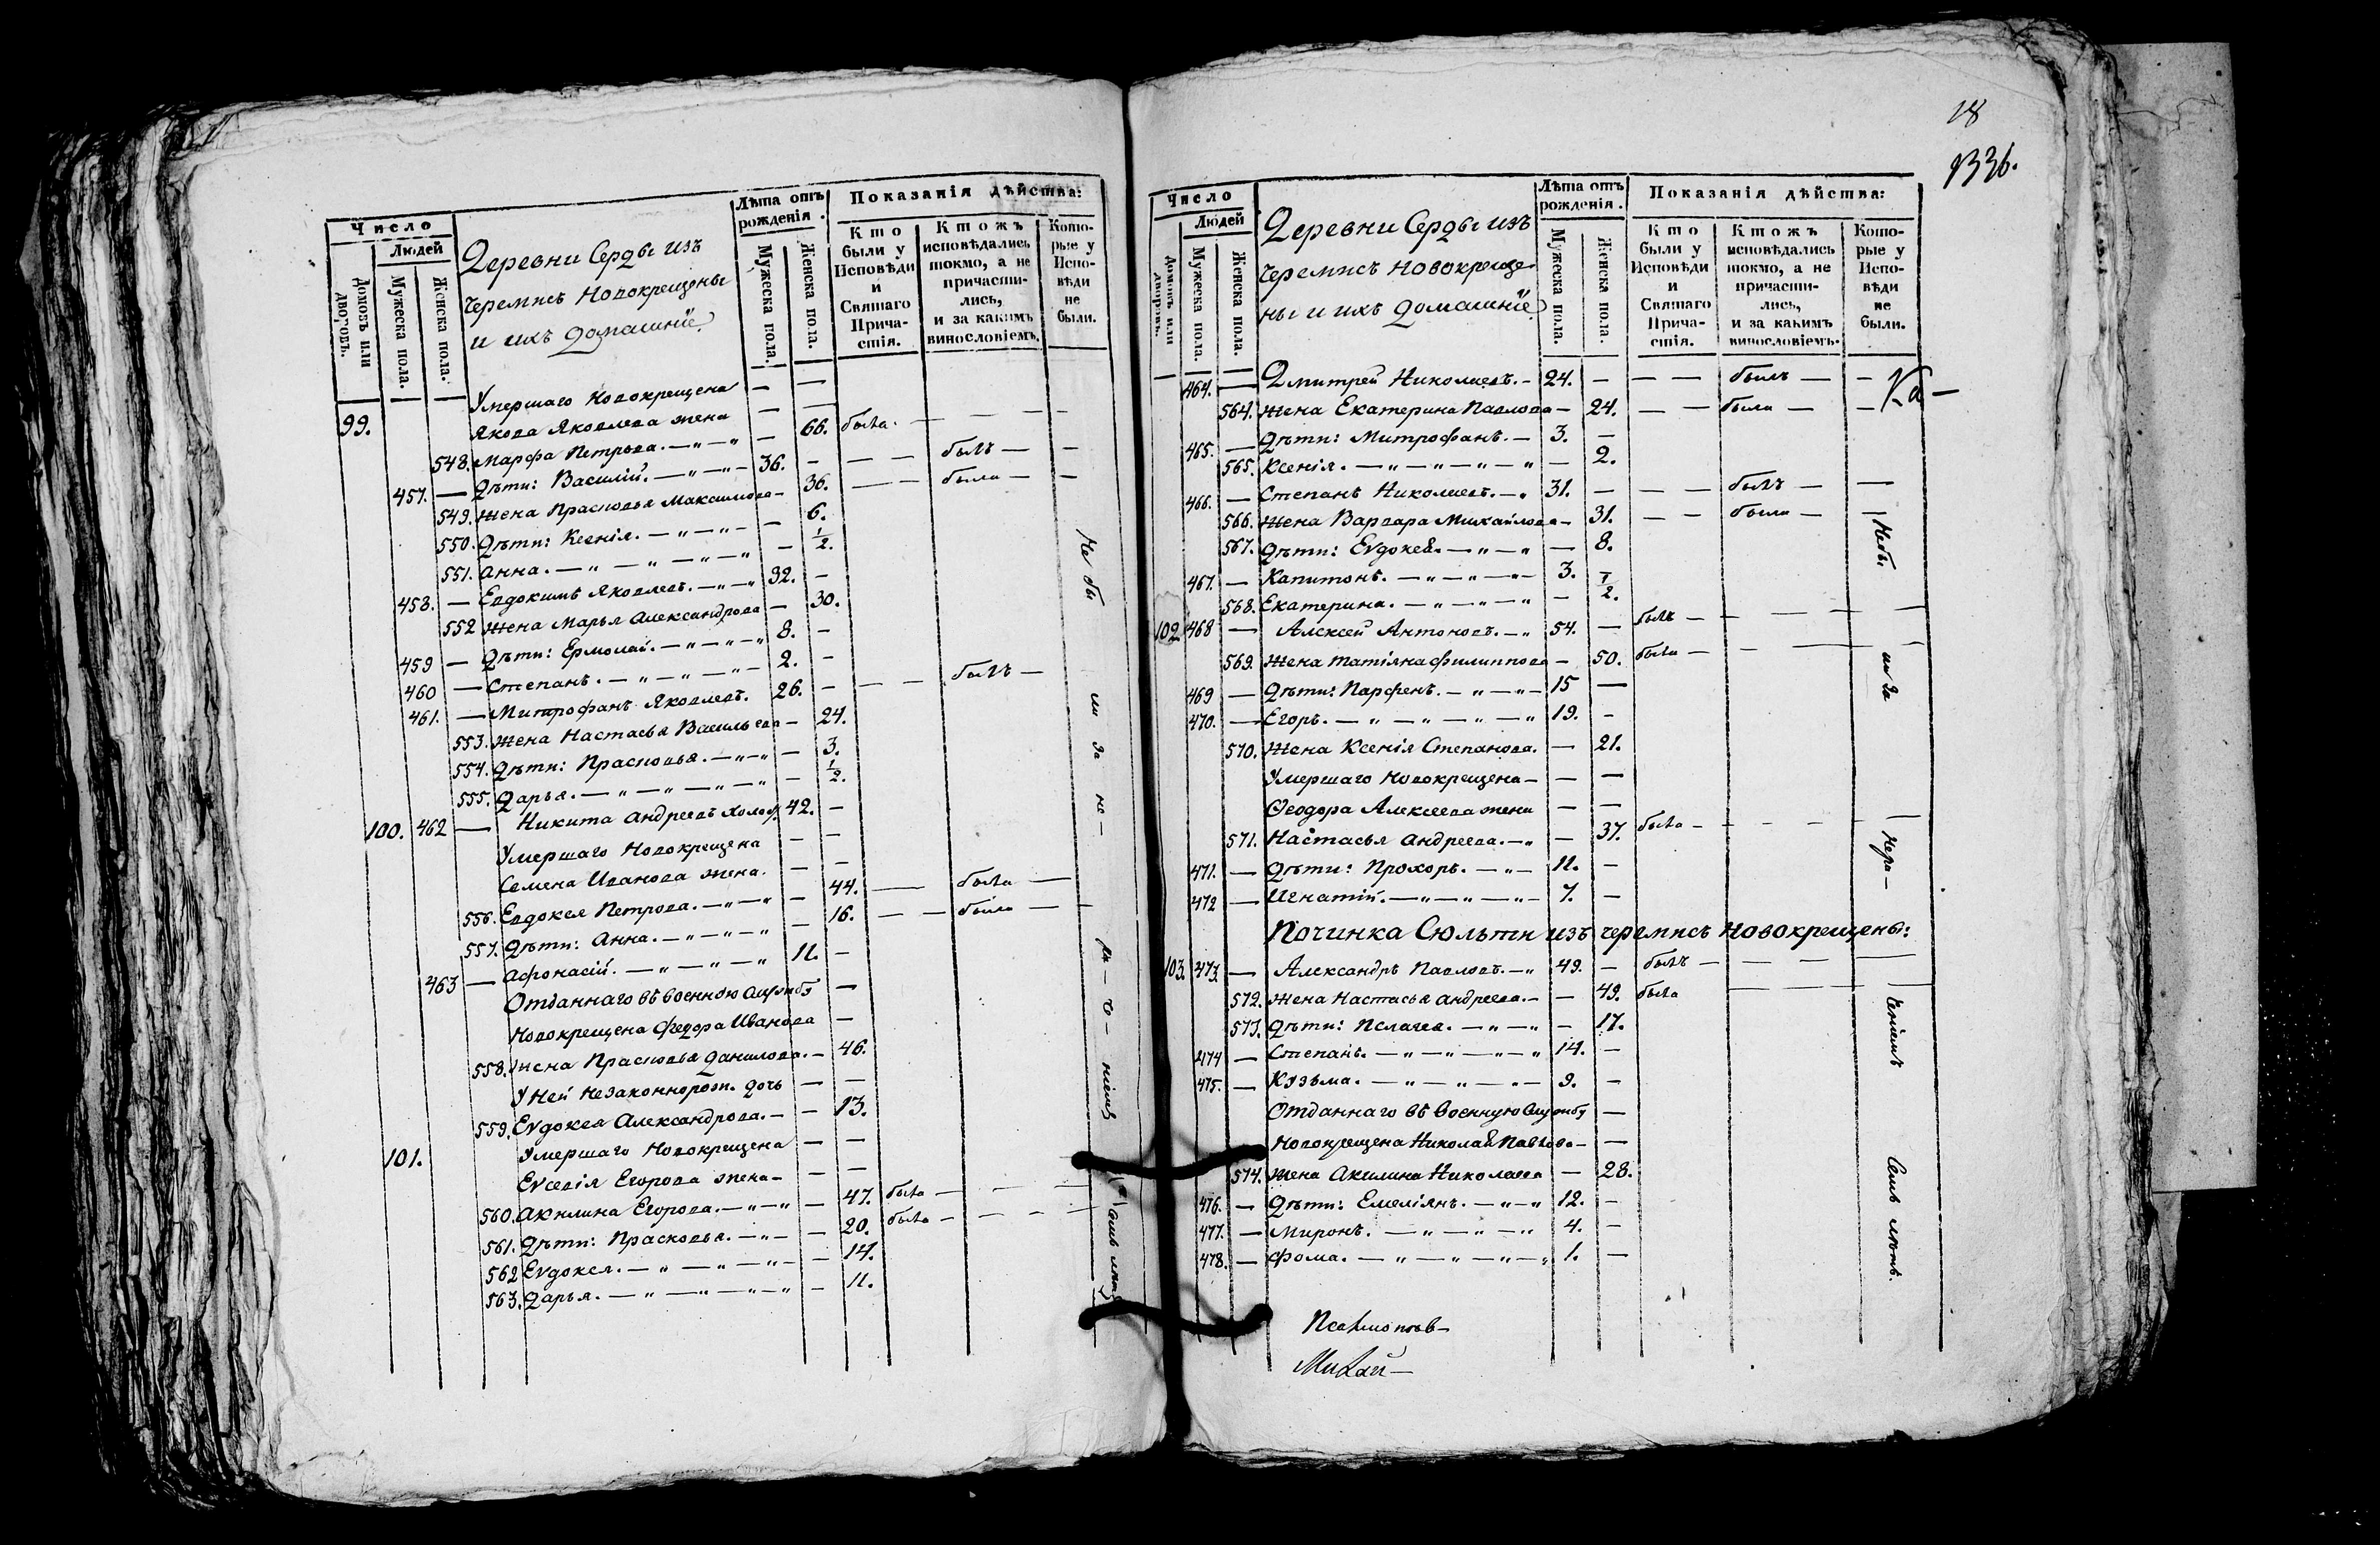 Число
Людей
Домовъ или дворовъ.
Мужеска пола.
Женска пола.
Деревни Серды изъ
черемисъ Новокрещены
и ихъ домашніе
Лѣта отъ рожденія.
Мужеска пола.
Женска пола.
Показанія дѣйства:
Кто были у Исповѣди и Святаго Причастія.
Ктожъ исповѣдались токмо, а не причастились, и за какимъ винословіемъ.
Которые у Исповѣди не были.
Умершаго Новокрещена — —
99. Якова Яковлева жена — —
548. Марфа Петрова. — 66. была.
457. — Дѣти: Василій. — 36. — былъ —
549. жена Прасковья Максимова — 36. была —
550. Дѣти: Ксенія. — 6.
551. Анна. — 1/2.
458. — Евдокимъ Яковлевъ. — 32. —
552 жена Марья Александрова — 30.
459 — Дѣти: Ермолай. — 8. —
460 — Степанъ. — 2. —
461. — Митрофанъ Яковлевъ. 26. — былъ —
553. жена Настасья Васильева — 24.
554. Дѣти: Прасковья. — 3.
555. Дарья. — 1/2.
100. 462 — Никита Андреевъ холос. 42. —
Умершаго Новокрещена — —
Семена Иванова жена. — —
556. Евдокея Петрова. — 44. — была —
557. Дѣти: Анна. — 16. — была —
463 — Афонасій. — 11. —
Отданнаго въ военную службу —
Новокрещена Федора Иванова —
558. жена Прасковья Данилова. — 46.
У ней незаконнорож. дочь — —
559. Еѵдокея Александрова. — 13.
101. Умершаго Новокрещена — —
Еѵсевія Егорова жена — —
560. Акилина Егорова. — 47. была —
561. Дѣти: Прасковья. — 20. была —
562 Еѵдокея. — 14.
563. Дарья. — 11.
Не бы
ли за не —
ніемъ
18
1336.
Число
Людей
Домовъ или дворовъ.
Мужеска пола.
Женска пола.
Деревни Серды изъ
черемисъ Новокреще
ны и ихъ домашніе
Лѣта отъ рожденія.
Мужеска пола.
Женска пола.
Показанія дѣйства:
Кто были у Исповѣди и Святаго Причастія.
Ктожъ исповѣдались токмо, а не причастились, и за какимъ винословіемъ.
Которые у Исповѣди не были.
464. — Дмитрей Николаевъ. — 24. — былъ —
564. жена Екатерина Павлова — 24. — была —
465. — Дѣти: Митрофанъ. — 3. —
565. Ксенія. — 2.
466. — Степанъ Николаевъ. — 31. — былъ —
566. жена Варвара Михайлова — 31. — была —
567. Дѣти: Еѵдокея. — 8.
467. — Капитонъ. — 3. —
568. Екатерина. — 1/2.
102. 468 — Алексей Антоновъ. — 54. — былъ —
569. жена Татіяна Филиппова — 50. была —
469 — Дѣти: Парфенъ. — 15 —
470. — Егоръ. — 19. —
570. жена Ксенія Степанова. — 21.
Умершаго Новокрещена — —
Ѳеодора Алексеева жена — —
571. Настасья Андреева. — 37. была —
471. — Дѣти: Прохоръ. — 11. —
472 — Игнатій. — 7. —
Починка Сюльти изъ черемисъ новокрещены:
103. 473. — Александръ Павловъ. — 49. — былъ —
572. жена Настасья Андреева. — 49. была
573. Дѣти: Пелагея. — 17.
474 — Степанъ. — 14. —
475. — Кузьма. — 9. —
Отданнаго въ военную службу —
новокрещена Николая Павлова — —
574. жена Акилина Николаева — 28.
476. — Дѣти: Емеліянъ. — 12. —
477. — Миронъ. — 4. —
478. — Фома. — 1. —
Небы
ли за
нера —
ченіемъ
Псаломщ